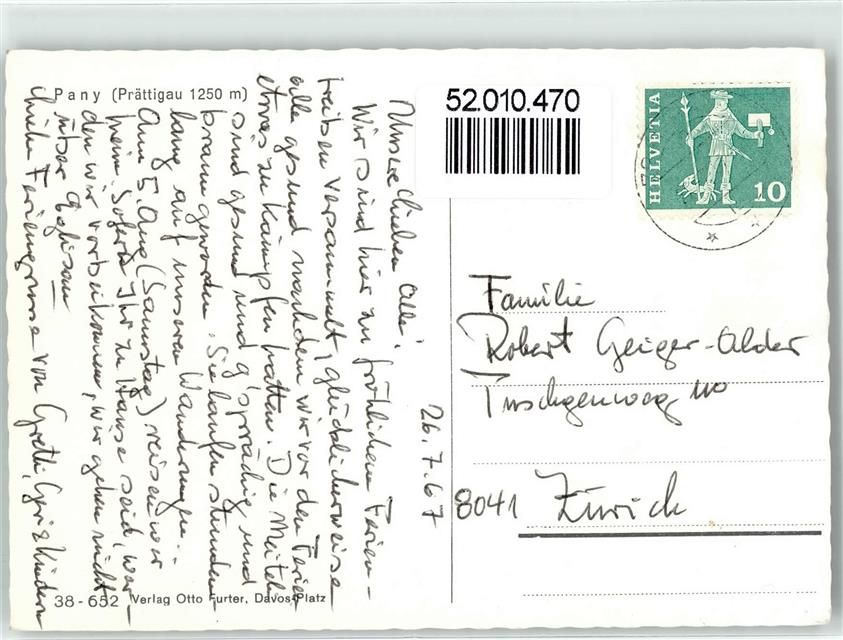 Pany (Prättigau 1250 m)
52.010.470
HELVETIA
10
26.7.67
Unsere lieben Alle!
Wir sind hier zu fröhlichem Ferien-
treiben versammelt, glücklicherweise
alle gesund nachdem wir vor den Ferien
etwas zu kämpfen hatten. Die Meiteli
sind gesund und g'sprächig und
braun geworden. Sie laufen stunden
lang auf unseren Wanderungen...
Am 5. Aug (Samstag) reisen wir
heim. Sofern Ihr zu Hause seid, wer-
den wir vorbeikommen, wir gehen nicht
über
Ferien grüsse von Gretli, & Kindern
Familie
Robert Geiger-Alder
8041 Zürich
38-652 Verlag Otto Furter, Davos-Platz